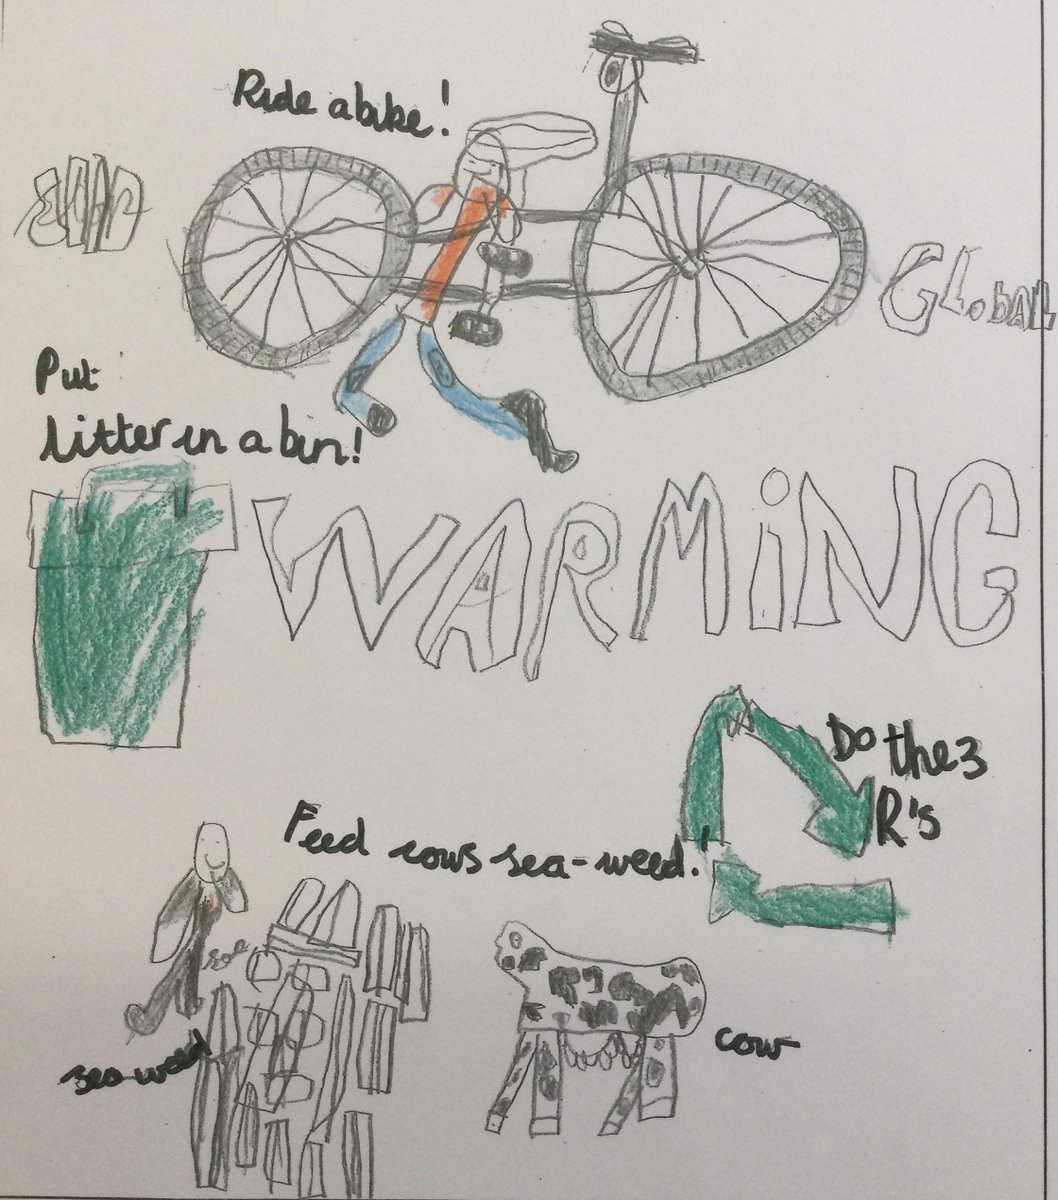 Ride a bike!
GLobAL
Put
litter in a bin!
WARMiNG
Do the 3
R's
Feed cows sea-weed!
sea-weed
cow